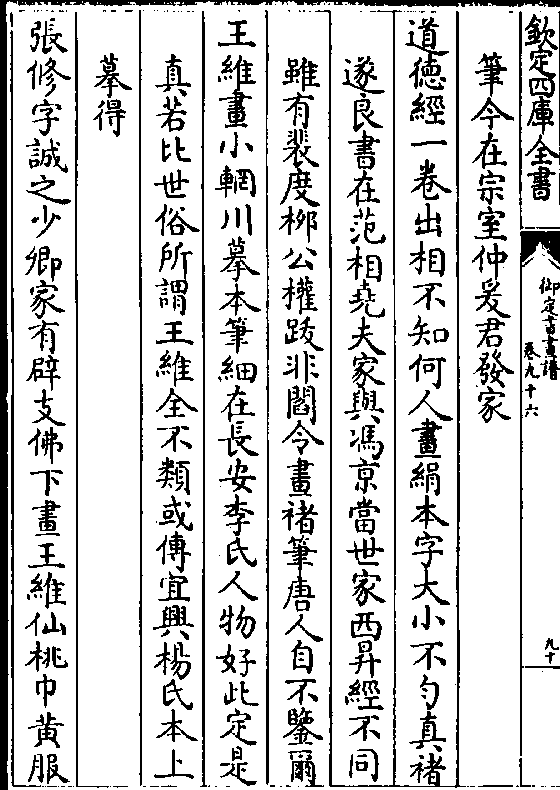 欽定四庫全書
御定書畫譜
卷九十六
九十
筆今在宗室仲爰君發家
道徳經一卷出相不知何人畫絹本字大小不匀真禇
遂良書在范相堯夫家與馮京當世家西昇經不同
雖有裴度栁公權跋非閻令畫禇筆唐人自不鑒爾
王維畫小輞川摹本筆細在長安李氏人物好此定是
真若比世俗所謂王維全不類或傳宜興楊氏本上
摹得
張修字誠之少卿家有辟支佛下畫王維仙桃巾黄服